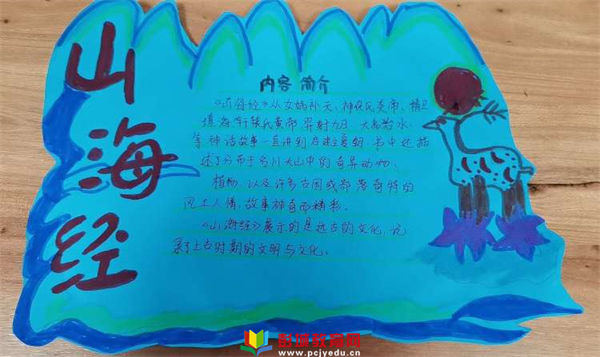 山海经
内容简介
《山海经》从女娲补天、神农氏炎帝、精卫
填海、轩辕氏黄帝、羿射九日、大禹治水
等神话故事一直讲到后稷夏朝,书中还描
述了分布于名川大山中的奇异动物、
植物,以及许多古国或部落奇特的
风土人情,故事神奇而精彩。
《山海经》展示的是远古的文化,记
录了上古时期的文明与文化。
www.pcjyedu.cn